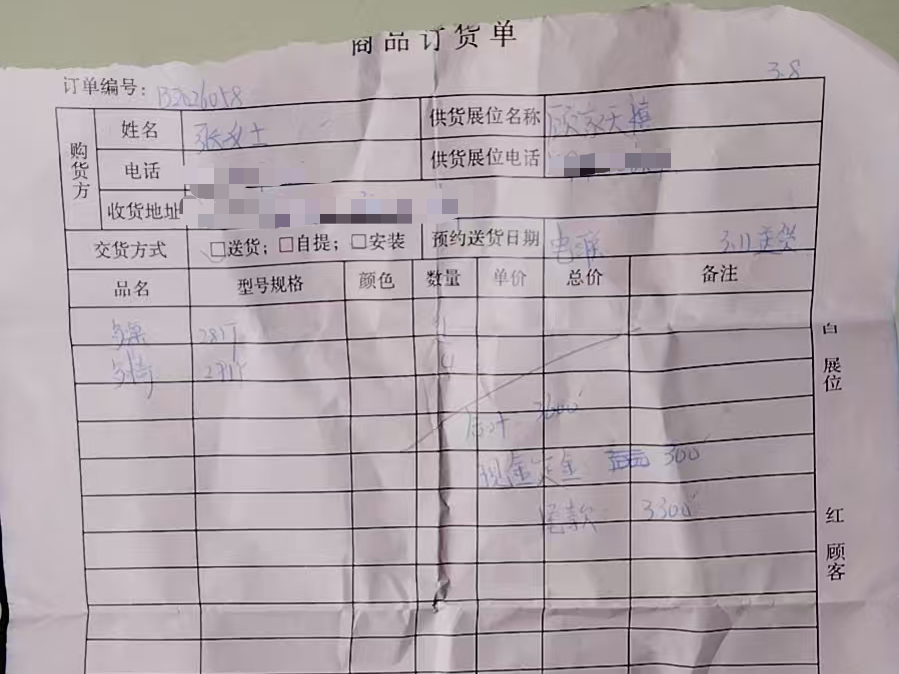 商品订货单
3.8
订单编号：
购货方
姓名 张女士 供货展位名称
电话 供货展位电话
收货地址
交货方式 □送货；□自提；□安装 预约送货日期 电联 3.11送货
品名 型号规格 颜色 数量 单价 总价 备注
281T 1
4
白 展位
合计 3600
现金定金 300
尾款 3300
红 顾客